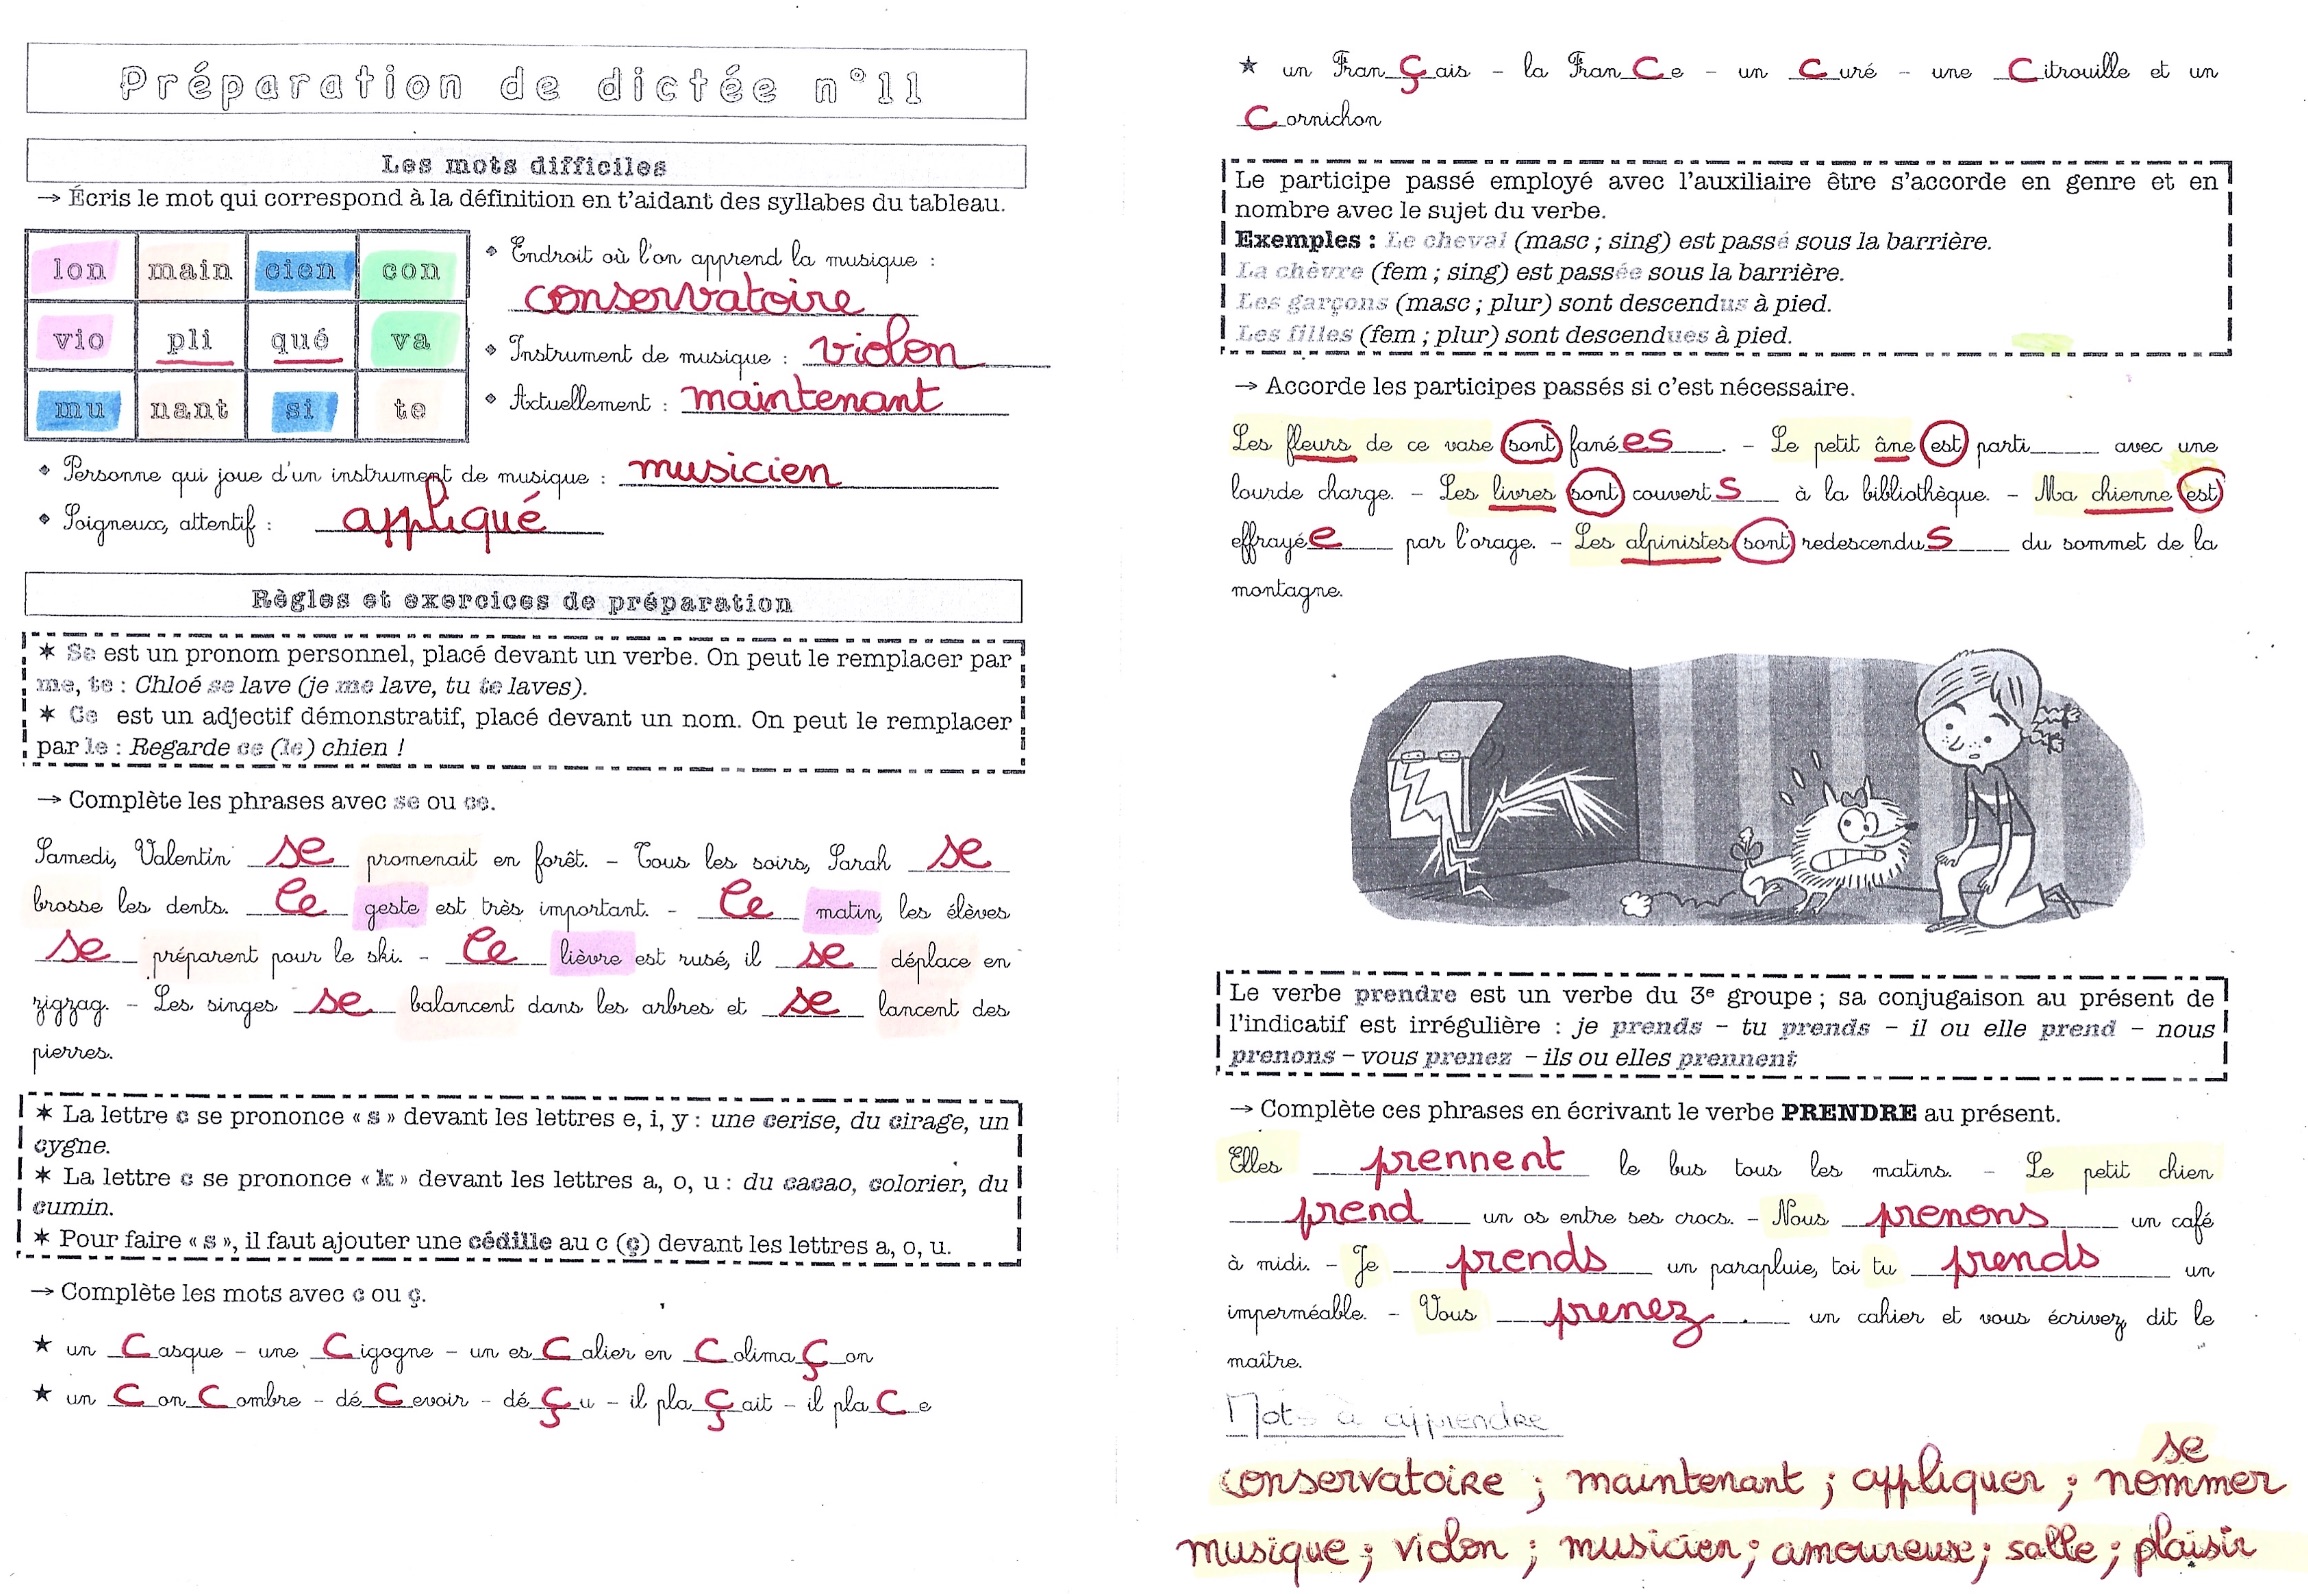 Préparation de dictée n°11
Les mots difficiles
→ Écris le mot qui correspond à la définition en t'aidant des syllabes du tableau.
lon main cien con
vio pli qué va
mu nant si te
◆ Endroit où l'on apprend la musique :
conservatoire
◆ Instrument de musique : violon
◆ Actuellement : maintenant
◆ Personne qui joue d'un instrument de musique : musicien
◆ Soigneux, attentif : appliqué
Règles et exercices de préparation
★ Se est un pronom personnel, placé devant un verbe. On peut le remplacer par
me, te : Chloé se lave (je me lave, tu te laves).
★ Ce est un adjectif démonstratif, placé devant un nom. On peut le remplacer
par le : Regarde ce (le) chien !
→ Complète les phrases avec se ou ce.
Samedi, Valentin se promenait en forêt. – Tous les soirs, Sarah se
brosse les dents. Ce geste est très important. – Ce matin, les élèves
se préparent pour le ski. – Ce lièvre est rusé, il se déplace en
zigzag. – Les singes se balancent dans les arbres et se lancent des
pierres.
★ La lettre c se prononce « s » devant les lettres e, i, y : une cerise, du cirage, un
cygne.
★ La lettre c se prononce « k » devant les lettres a, o, u : du cacao, colorier, du
cumin.
★ Pour faire « s », il faut ajouter une cédille au c (ç) devant les lettres a, o, u.
→ Complète les mots avec c ou ç.
★ un Casque – une Cigogne – un esCalier en ColimaÇon
★ un ConCombre – déCevoir – déÇu – il plaÇait – il plaCe
★ un FranÇais – la FranCe – un Curé – une Citrouille et un
Cornichon
Le participe passé employé avec l'auxiliaire être s'accorde en genre et en
nombre avec le sujet du verbe.
Exemples : Le cheval (masc ; sing) est passé sous la barrière.
La chèvre (fem ; sing) est passée sous la barrière.
Les garçons (masc ; plur) sont descendus à pied.
Les filles (fem ; plur) sont descendues à pied.
→ Accorde les participes passés si c'est nécessaire.
Les fleurs de ce vase sont fanées. – Le petit âne est parti____ avec une
lourde charge. – Les livres sont couverts à la bibliothèque. – Ma chienne est
effrayée par l'orage. – Les alpinistes sont redescendus du sommet de la
montagne.
Le verbe prendre est un verbe du 3e groupe ; sa conjugaison au présent de
l'indicatif est irrégulière : je prends – tu prends – il ou elle prend – nous
prenons – vous prenez – ils ou elles prennent
→ Complète ces phrases en écrivant le verbe PRENDRE au présent.
Elles prennent le bus tous les matins. – Le petit chien
prend un os entre ses crocs. – Nous prenons un café
à midi. – Je prends un parapluie, toi tu prends un
imperméable. – Vous prenez un cahier et vous écrivez, dit le
maître.
Mots à apprendre
se
conservatoire ; maintenant ; appliquer ; nommer
musique ; violon ; musicien ; amoureuse ; salle ; plaisir